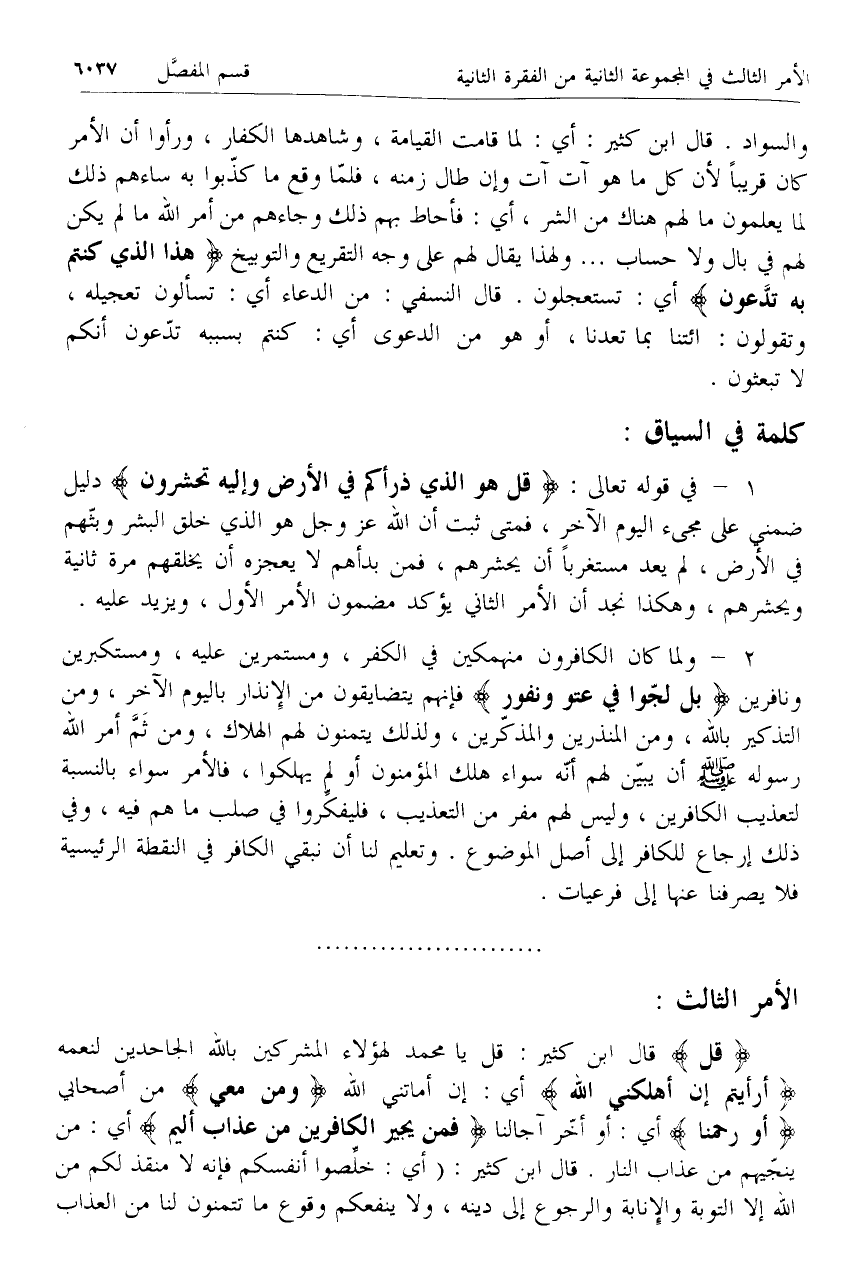 الأمر الثالث في المجموعة الثانية من الفقرة الثانية قسم المفصَّل ٦٠٣٧
والسواد . قال ابن كثير : أي : لما قامت القيامة ، وشاهدها الكفار ، ورأوا أن الأمر
كان قريباً لأن كل ما هو آت آت وإن طال زمنه ، فلمّا وقع ما كذّبوا به ساءهم ذلك
لما يعلمون ما لهم هناك من الشر ، أي : فأحاط بهم ذلك وجاءهم من أمر الله ما لم يكن
لهم في بال ولا حساب ... ولهذا يقال لهم على وجه التقريع والتوبيخ ﴿ هذا الذي كنتم
به تدَّعون ﴾ أي : تستعجلون . قال النسفي : من الدعاء أي : تسألون تعجيله ،
وتقولون : ائتنا بما تعدنا ، أو هو من الدعوى أي : كنتم بسببه تدّعون أنكم
لا تبعثون .
كلمة في السياق :
١ – في قوله تعالى : ﴿ قل هو الذي ذرأكم في الأرض وإليه تحشرون ﴾ دليل
ضمني على مجيء اليوم الآخر ، فمتى ثبت أن الله عز وجل هو الذي خلق البشر وبثّهم
في الأرض ، لم يعد مستغرباً أن يحشرهم ، فمن بدأهم لا يعجزه أن يخلقهم مرة ثانية
ويحشرهم ، وهكذا نجد أن الأمر الثاني يؤكد مضمون الأمر الأول ، ويزيد عليه .
٢ – ولما كان الكافرون منهمكين في الكفر ، ومستمرين عليه ، ومستكبرين
ونافرين ﴿ بل لجّوا في عتو ونفور ﴾ فإنهم يتضايقون من الإنذار باليوم الآخر ، ومن
التذكير بالله ، ومن المنذرين والمذكّرين ، ولذلك يتمنون لهم الهلاك ، ومن ثَمَّ أمر الله
رسوله ﷺ أن يبيّن لهم أنّه سواء هلك المؤمنون أو لم يهلكوا ، فالأمر سواء بالنسبة
لتعذيب الكافرين ، وليس لهم مفر من التعذيب ، فليفكّروا في صلب ما هم فيه ، وفي
ذلك إرجاع للكافر إلى أصل الموضوع . وتعليم لنا أن نبقي الكافر في النقطة الرئيسية
فلا يصرفنا عنها إلى فرعيات .
.........................
الأمر الثالث :
﴿ قل ﴾ قال ابن كثير : قل يا محمد لهؤلاء المشركين بالله الجاحدين لنعمه
﴿ أرأيتم إن أهلكني الله ﴾ أي : إن أماتني الله ﴿ ومن معي ﴾ من أصحابي
﴿ أو رحمنا ﴾ أي : أو أخّر آجالنا ﴿ فمن يجير الكافرين من عذاب أليم ﴾ أي : من
ينجّيهم من عذاب النار . قال ابن كثير : ( أي : خلّصوا أنفسكم فإنه لا منقذ لكم من
الله إلا التوبة والإنابة والرجوع إلى دينه ، ولا ينفعكم وقوع ما تتمنون لنا من العذاب